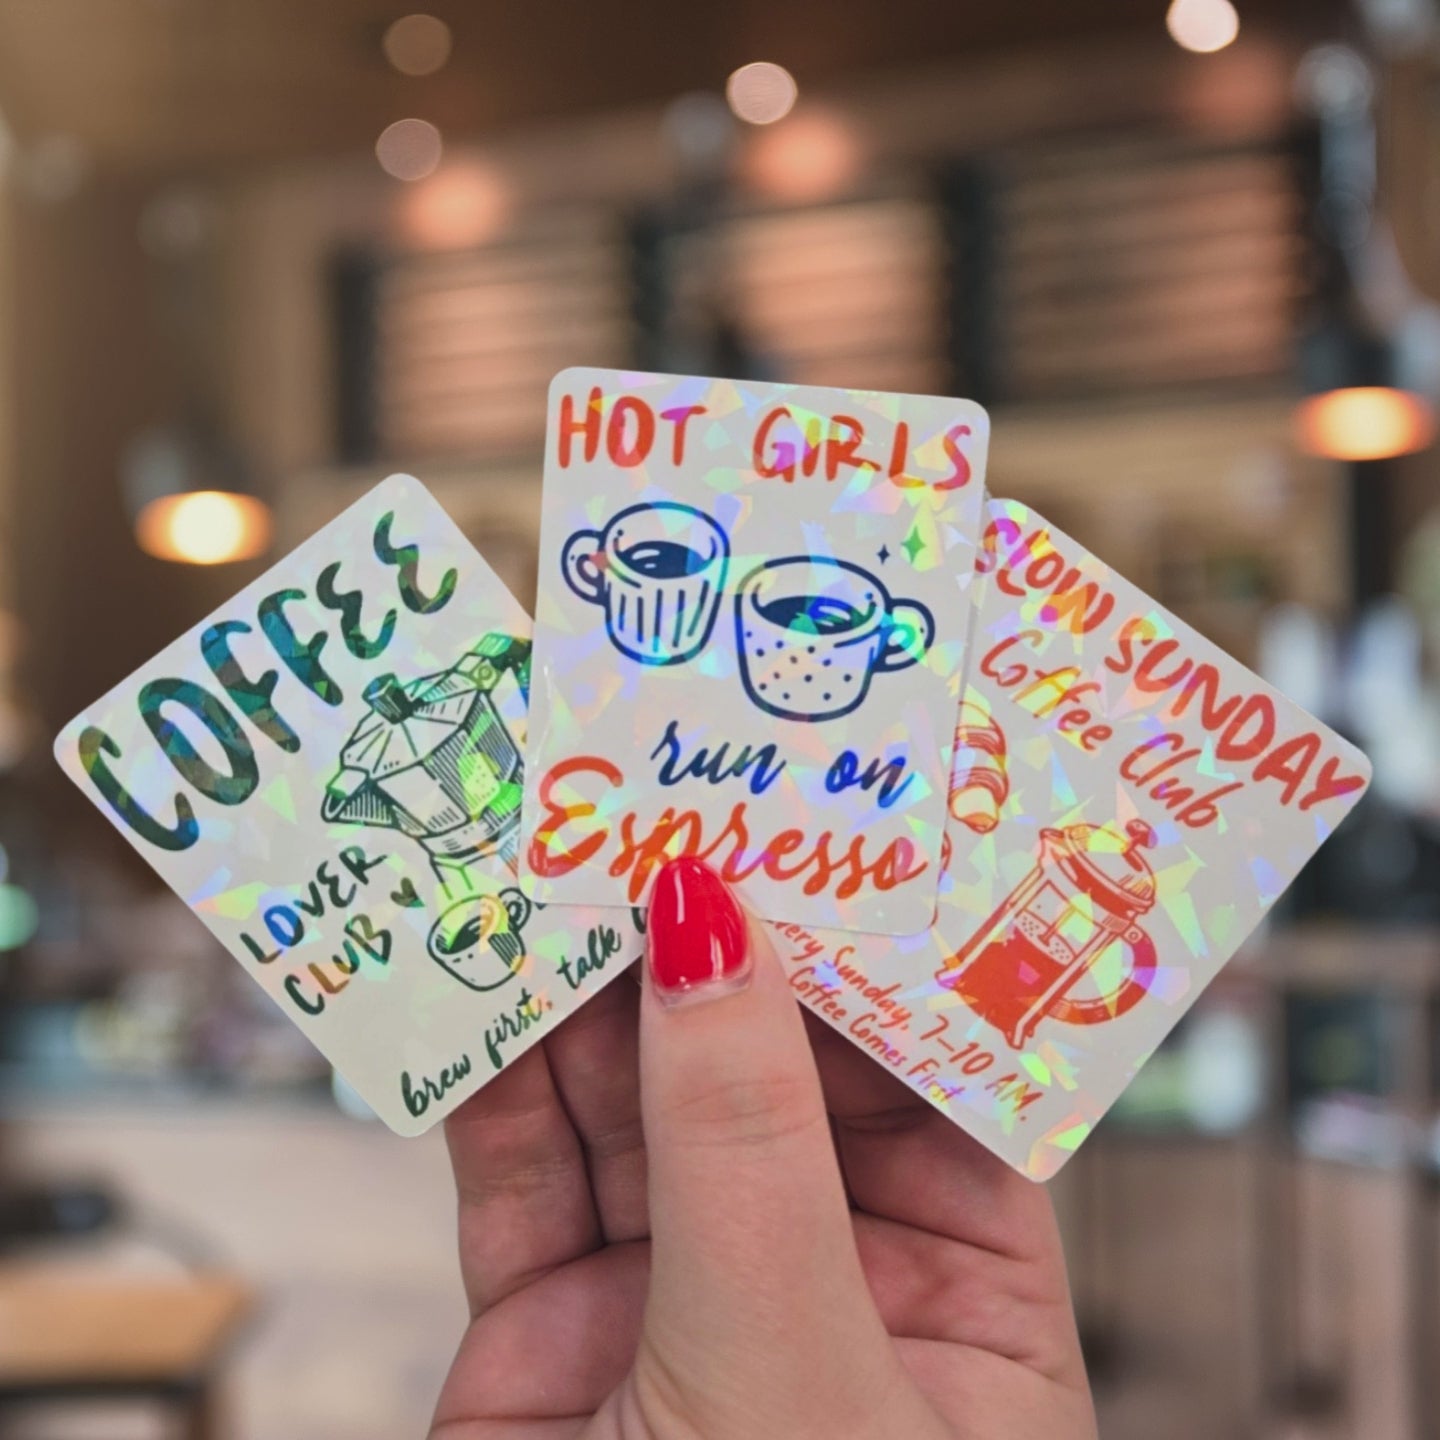 COFFEE
LOVER
CLUB
brew first, talk
HOT GIRLS
run on
Espresso
SLOW SUNDAY
Coffee Club
very Sunday, 7-10 AM.
Coffee Comes First